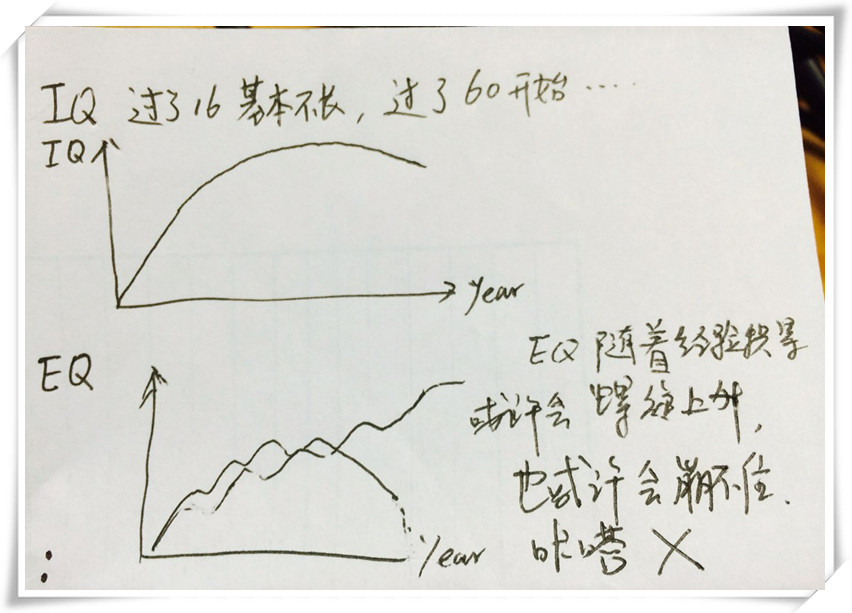 IQ 过了16基本不长，过了60开始……
IQ
Year
EQ
EQ 随着经验积累
或许会螺旋上升，
也或许会崩不住.
咔嗒 X
Year